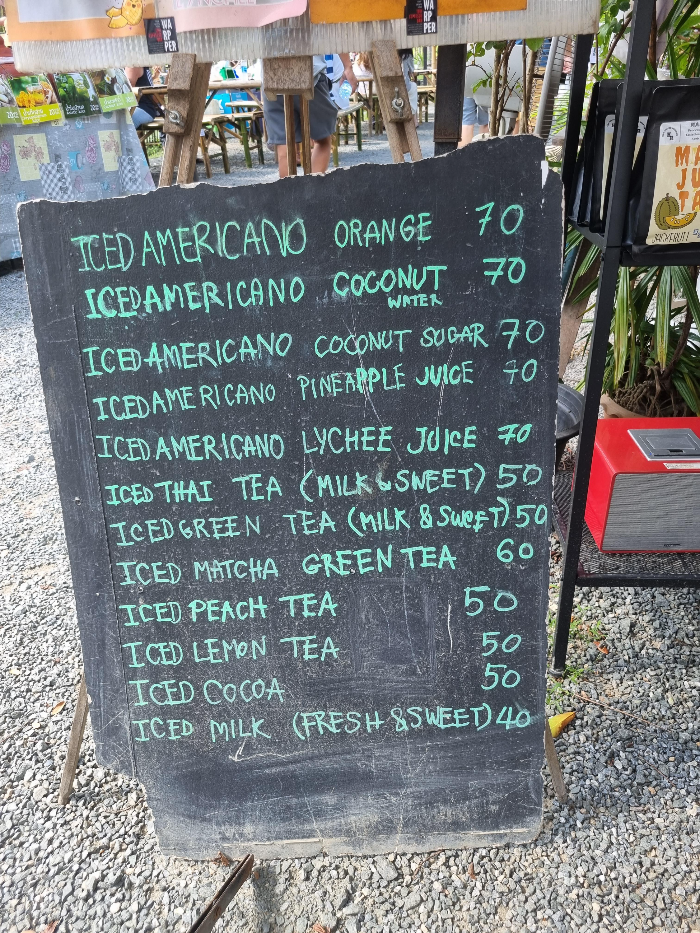 WARPPER
WARPPER
ICED AMERICANO ORANGE 70
ICED AMERICANO COCONUT WATER 70
ICED AMERICANO COCONUT SUGAR 70
ICED AMERICANO PINEAPPLE JUICE 70
ICED AMERICANO LYCHEE JUICE 70
ICED THAI TEA (MILK & SWEET) 50
ICED GREEN TEA (MILK & SWEET) 50
ICED MATCHA GREEN TEA 60
ICED PEACH TEA 50
ICED LEMON TEA 50
ICED COCOA 50
ICED MILK (FRESH & SWEET) 40